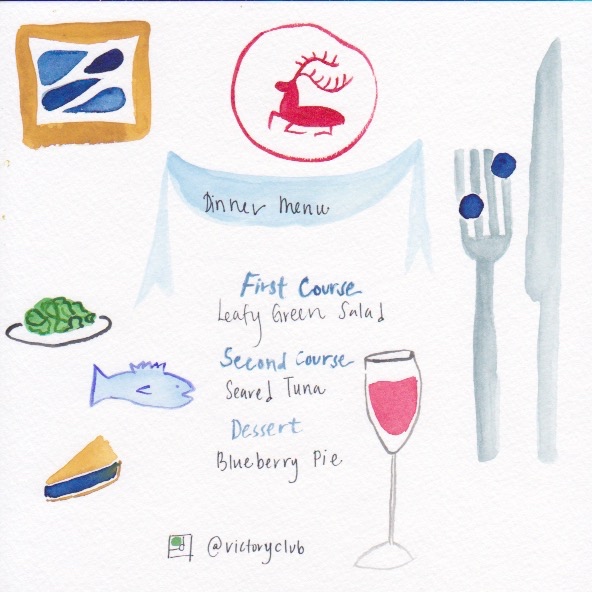 Dinner Menu
First Course
Leafy Green Salad
Second Course
Seared Tuna
Dessert
Blueberry Pie
@victoryclub